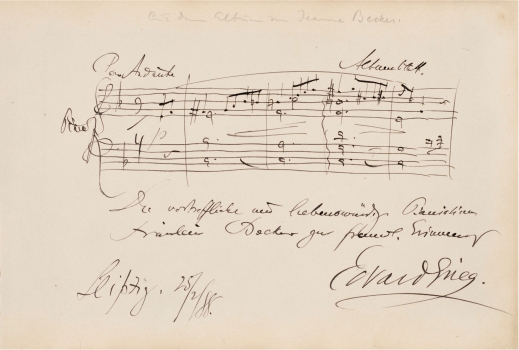 Aus dem Album von Jeanne Becker.
Poco Andante Albumblatt.
Piano
p
Die vortreffliche und liebenswürdige Pianistin
Fräulein Becker zur freundl. Erinnerung
Leipzig. 25/2/88. Edvard Grieg.